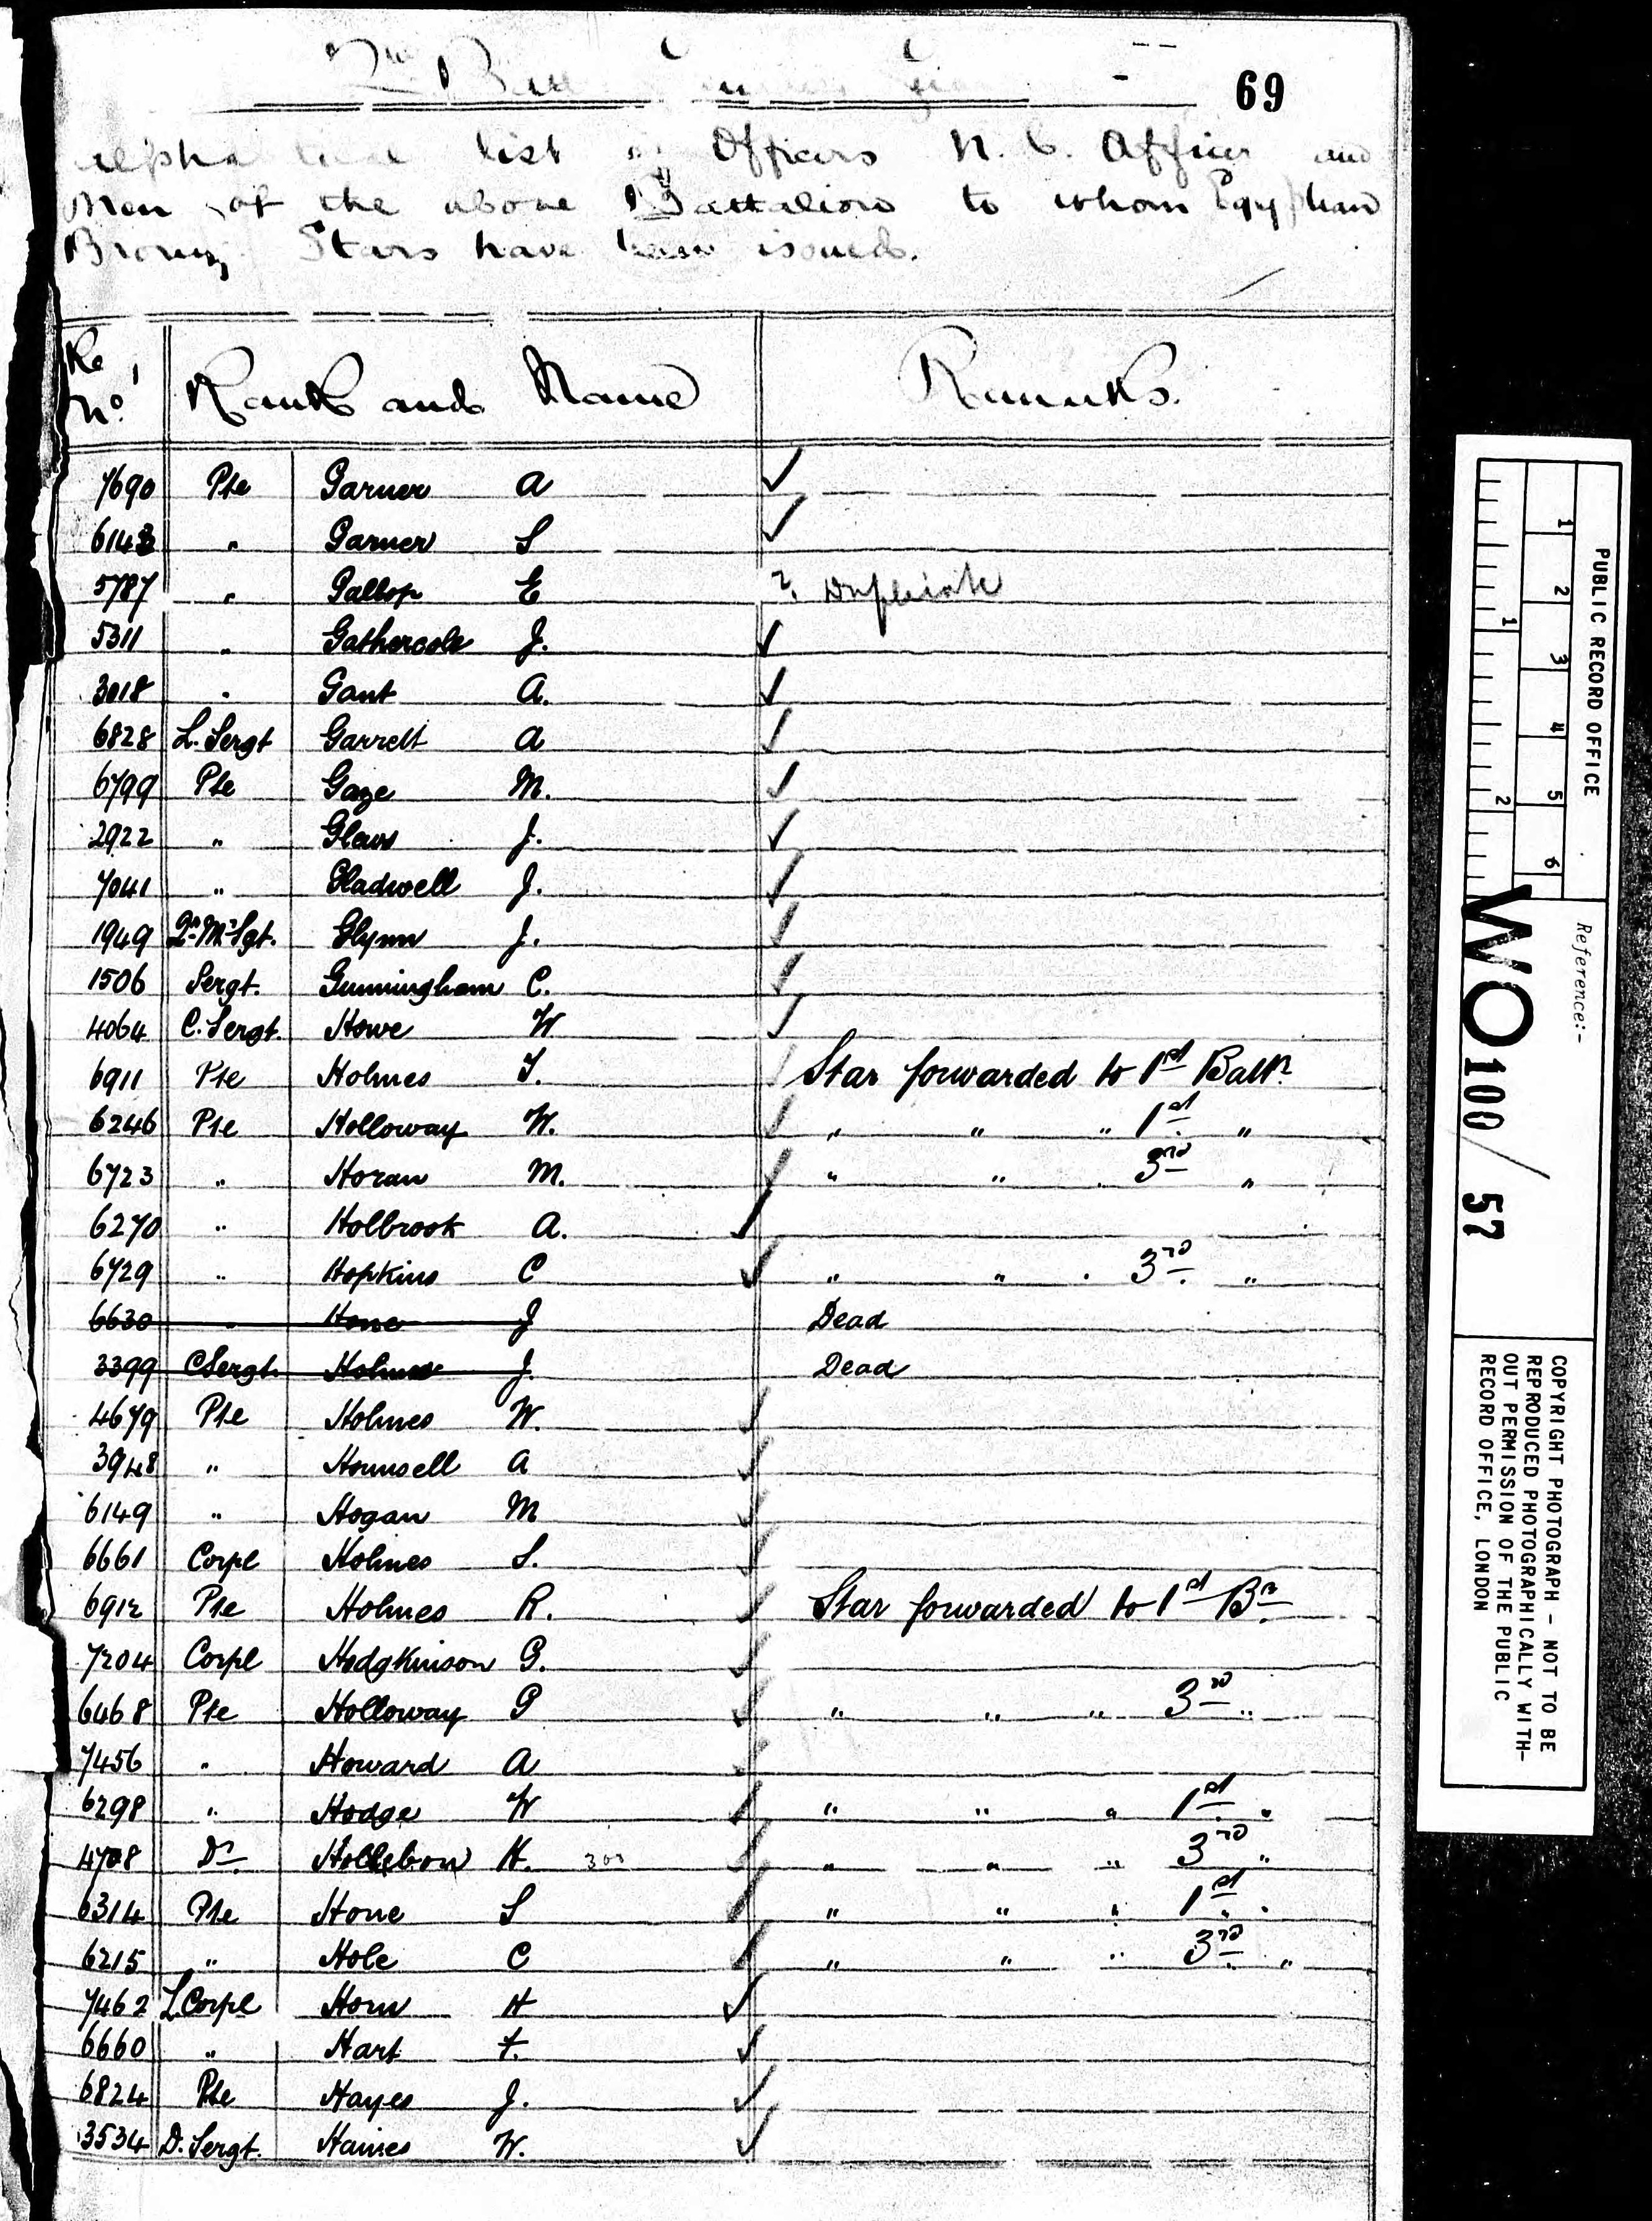 69
list of Officers N. C. Officers and
Men of the above Battalion to whom Egyptian
Bronze Stars have been issued.
Re No. Rank and Name Remarks.
7690 Pte Garner A ✓
6143 " Garner S ✓
5787 " Gallop E ? Duplicate
5311 " Gathercole J. ✓
3018 " Gant A. ✓
6828 L. Sergt Garrett A ✓
6799 Pte Gaze M. ✓
2922 " Glews J. ✓
7041 " Gladwell J. ✓
1949 Qr. Mr Sgt. Glynn J. ✓
1506 Sergt. Gunningham C. ✓
4064 C. Sergt. Howe W ✓
6911 Pte Holmes T. ✓ Star forwarded to 1st Battn
6246 Pte Holloway W. ✓ " " " 1st "
6723 " Horan M. ✓ " " " 3rd "
6270 " Holbrook A. ✓
6729 " Hopkins C ✓ " " " 3rd "
6630 " Hone J Dead
3399 C Sergt. Holmes J. Dead
4679 Pte Holmes W. ✓
3948 " Hounsell A ✓
6149 " Hogan M ✓
6661 Corpl Holmes S. ✓
6912 Pte Holmes R. ✓ Star forwarded to 1st Bn
7204 Corpl Hodgkinson G. ✓
6468 Pte Holloway G ✓ " " " 3rd "
7456 " Howard A ✓
6298 " Hodge W ✓ " " " 1st "
4708 Dr. Hollebon H. 303 ✓ " " " 3rd "
6314 Pte Hone S ✓ " " " 1st "
6215 " Hole C ✓ " " " 3rd "
7462 L Corpl Horn H ✓
6660 " Hart F. ✓
6824 Pte Hayes J. ✓
3534 D. Sergt. Haines W. ✓
PUBLIC RECORD OFFICE
1 2 3 4 5 6
1 2
Reference:-
WO 100 / 57
COPYRIGHT PHOTOGRAPH - NOT TO BE
REPRODUCED PHOTOGRAPHICALLY WITH-
OUT PERMISSION OF THE PUBLIC
RECORD OFFICE, LONDON